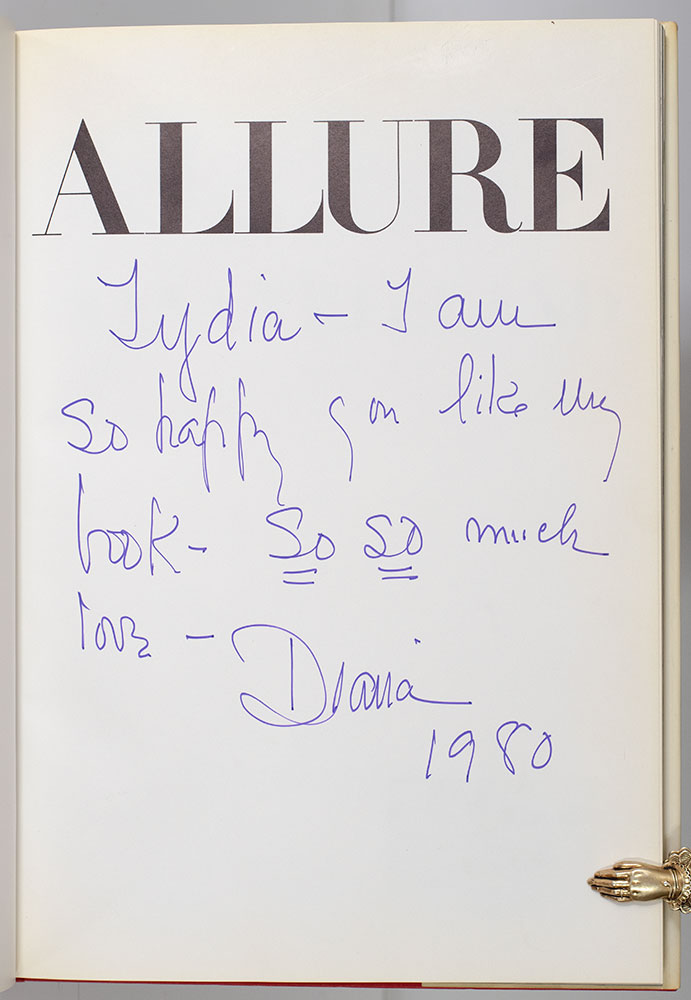 ALLURE
Lydia – I am
so happy you like my
book – So So much
love –
Diana
1980